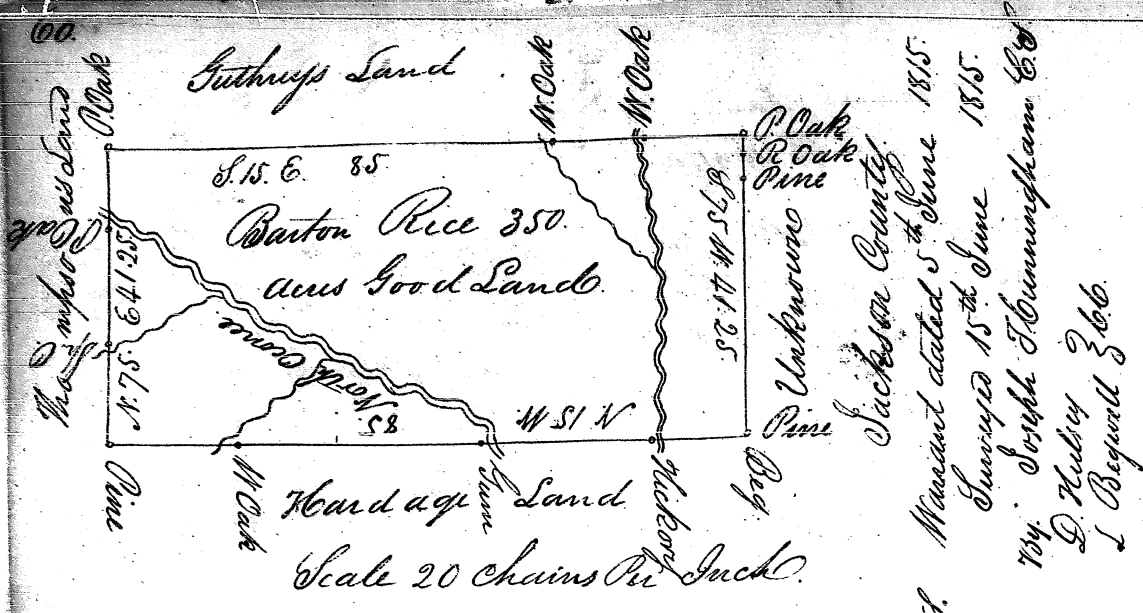 60.
Guthrys Land
P. Oak
W. Oak
W. Oak
P. Oak
R Oak
Pine
S. 15. E. 85.
Barton Rice 350.
acres Good Land.
Thompson's Land
P. Oak
N. 75. E 41.25
S 75 W 41.25
Unknown
North Oconee
85
N 15 W
Pine
Beg
Pine
W Oak
Gum
Hickory
Hardage Land
Scale 20 Chains Per Inch.
Jackson County
Warrant dated 5th June 1815.
Surveyed 15th June 1815.
By. Joseph T Cunningham C.S.
D. Hulsey
L Bagwell } C.C.